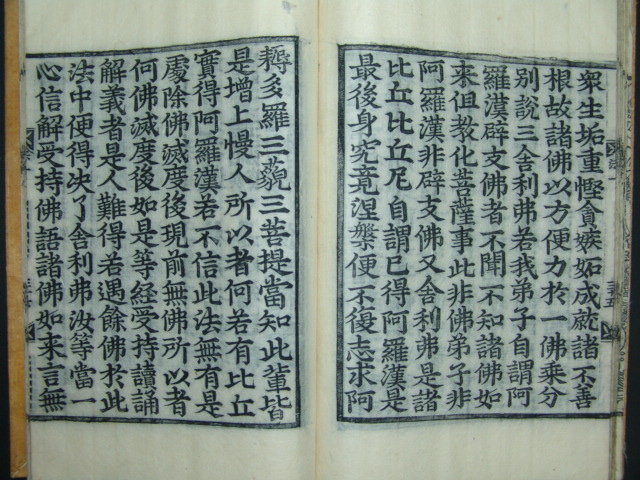 衆生垢重慳貪嫉妬成就諸不善
根故諸佛以方便力於一佛乘分
別說三舍利弗若我弟子自謂阿
羅漢辟支佛者不聞不知諸佛如
来但教化菩薩事此非佛弟子非
阿羅漢非辟支佛又舍利弗是諸
比丘比丘尼自謂已得阿羅漢是
最後身究竟涅槃便不復志求阿
耨多羅三藐三菩提當知此輩皆
是增上慢人所以者何若有比丘
實得阿羅漢若不信此法無有是
處除佛滅度後現前無佛所以者
何佛滅度後如是等經受持讀誦
解義者是人難得若遇餘佛於此
法中便得决了舍利弗汝等當一
心信解受持佛語諸佛如来言無